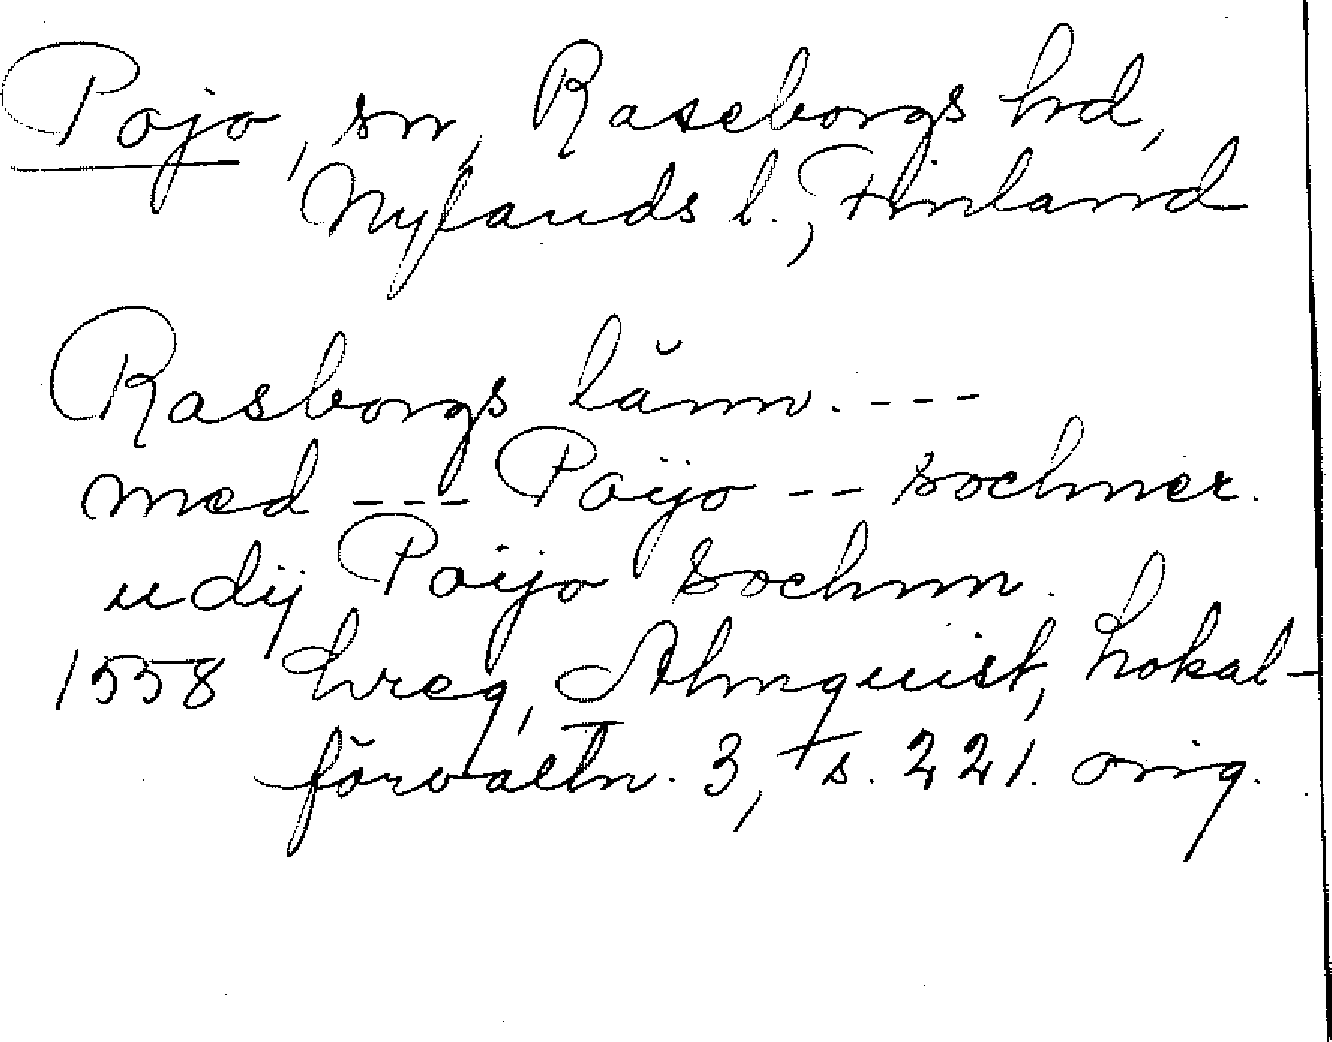 Pojo, sn, Raseborgs hd,
Nylands l., Finland
Rasborgs länn. ---
med --- Poijo -- sochner.
udij Poijo sochnn.
1558 hreg, Almquist, Lokal-
förvaltn. 3, s. 221. orig.